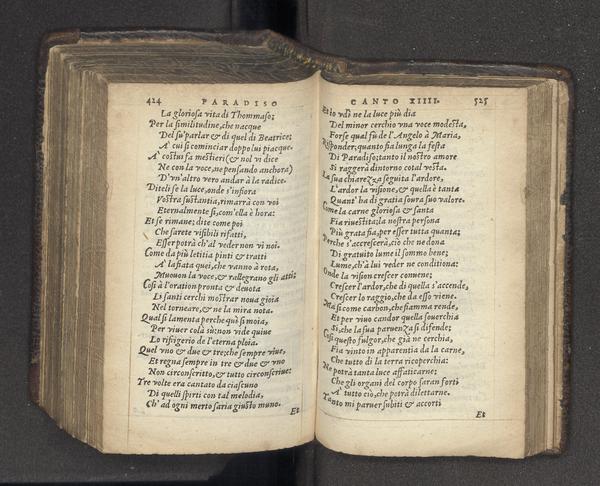 424 PARADISO
La gloriosa vita di Thommaso;
Per la similitudine, che nacque
Del su' parlar & di quel di Beatrice;
A' cui si cominciar doppo lui piacque.
A' costui fa mestieri (& nol vi dice
Ne con la voce, ne pensando anchora)
D'un' altro vero andar à la radice.
Diteli se la luce, onde s'infiora
Vostra sustantia, rimarrà con voi
Eternalmente sì, com'ella è hora:
Et se rimane; dite come poi
Che sarete visibili rifatti,
Esser potrà ch'al veder non vi noi.
Come da più letitia pinti & tratti
A' la fiata quei, che vanno à rota,
Muovon la voce, & rallegrano gli atti;
Così à l'oration pronta & devota
Li santi cerchi mostrar nova gioia
Nel torneare, & ne la mira nota.
Qual si lamenta perche quì si moia,
Per viver colà sù; non vide quive
Lo rifrigerio de l'eterna ploia.
Quel uno & due & tre; che sempre vive,
Et regna sempre in tre & due & uno
Non circonscritto, & tutto circonscrive:
Tre volte era cantato da ciascuno
Di quelli spirti con tal melodia,
Ch' ad ogni merto saria giusto muno.
Et
CANTO XIIII. 525
Et io udì ne la luce più dia
Del minor cerchio una voce modesta,
Forse qual fù de l'Angelo à Maria,
Risponder; quanto fia lunga la festa
Di Paradiso; tanto il nostro amore
Si raggerà dintorno cotal vesta.
La sua chiarezza seguita l'ardore,
L'ardor la visione, & quella è tanta
Quant' hà di gratia soura suo valore.
Come la carne gloriosa & santa
Fia rivestita; la nostra persona
Più grata fia, per esser tutta quanta;
Perche s'accrescerà, ciò che ne dona
Di gratuito lume il sommo bene;
Lume, ch'à lui veder ne conditiona:
Onde la vision crescer convene;
Crescer l'ardor, che di quella s'accende,
Crescer lo raggio, che da esso viene.
Ma sì come carbon, che fiamma rende,
Et per vivo candor quella soverchia
Sì, che la sua parvenza si difende;
Così questo fulgor, che già ne cerchia,
Fia vinto in apparentia da la carne,
Che tutto dì la terra ricoperchia:
Ne potrà tanta luce affaticarne;
Che gli organi del corpo saran forti
A' tutto ciò, che potrà dilettarne.
Tanto mi parver subiti & accorti
Et